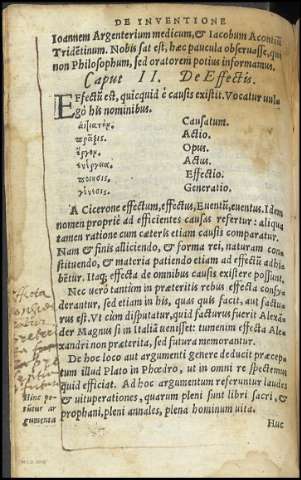 DE INVENTIONE
Ioannem Argenterium medicum, & Iacobum Acontiū
Tridētinum. Nobis sat est, hæc paucula obseruasse, qui
non Philosophum, sed oratorem potius informamus.
Caput II. De Effectis.
EFfectū est, quicquid è causis existit. Vocatur uul
gò his nominibus.
αἰτιατόν. Causatum.
πρᾶξις. Actio.
ἔργον. Opus.
ἐνέργεια. Actus.
ποίησις. Effectio.
γένεσις. Generatio.
A Cicerone effectum, effectus, Euentū, euentus. Idem
nomen propriè ad efficientes causas refertur: aliqua
tamen ratione cum cæteris etiam causis comparatur.
Nam & finis alliciendo, & forma rei, naturam con
stituendo, & materia patiendo etiam ad effectū adhi
bētur. Itaq; effecta de omnibus causis existere possunt.
Nec uerò tantùm in præteritis rebus effecta consy
derantur, sed etiam in his, quas quis facit, aut factu-
rus est. Vt cùm disputatur, quid facturus fuerit Alexā
der Magnus si in Italiā uenisset: tum enim effecta Ale
xandri non præterita, sed futura memorantur.
De hoc loco aut argumenti genere deducit præcep
tum illud Plato in Phœdro, ut in omni re spectemus
quid efficiat. Ad hoc argumentum referuntur laudes
& uituperationes, quarum pleni sunt libri sacri, &
prophani, pleni annales, plena hominum uita.
Hinc pe-
tūtur ar
gumenta
Huc